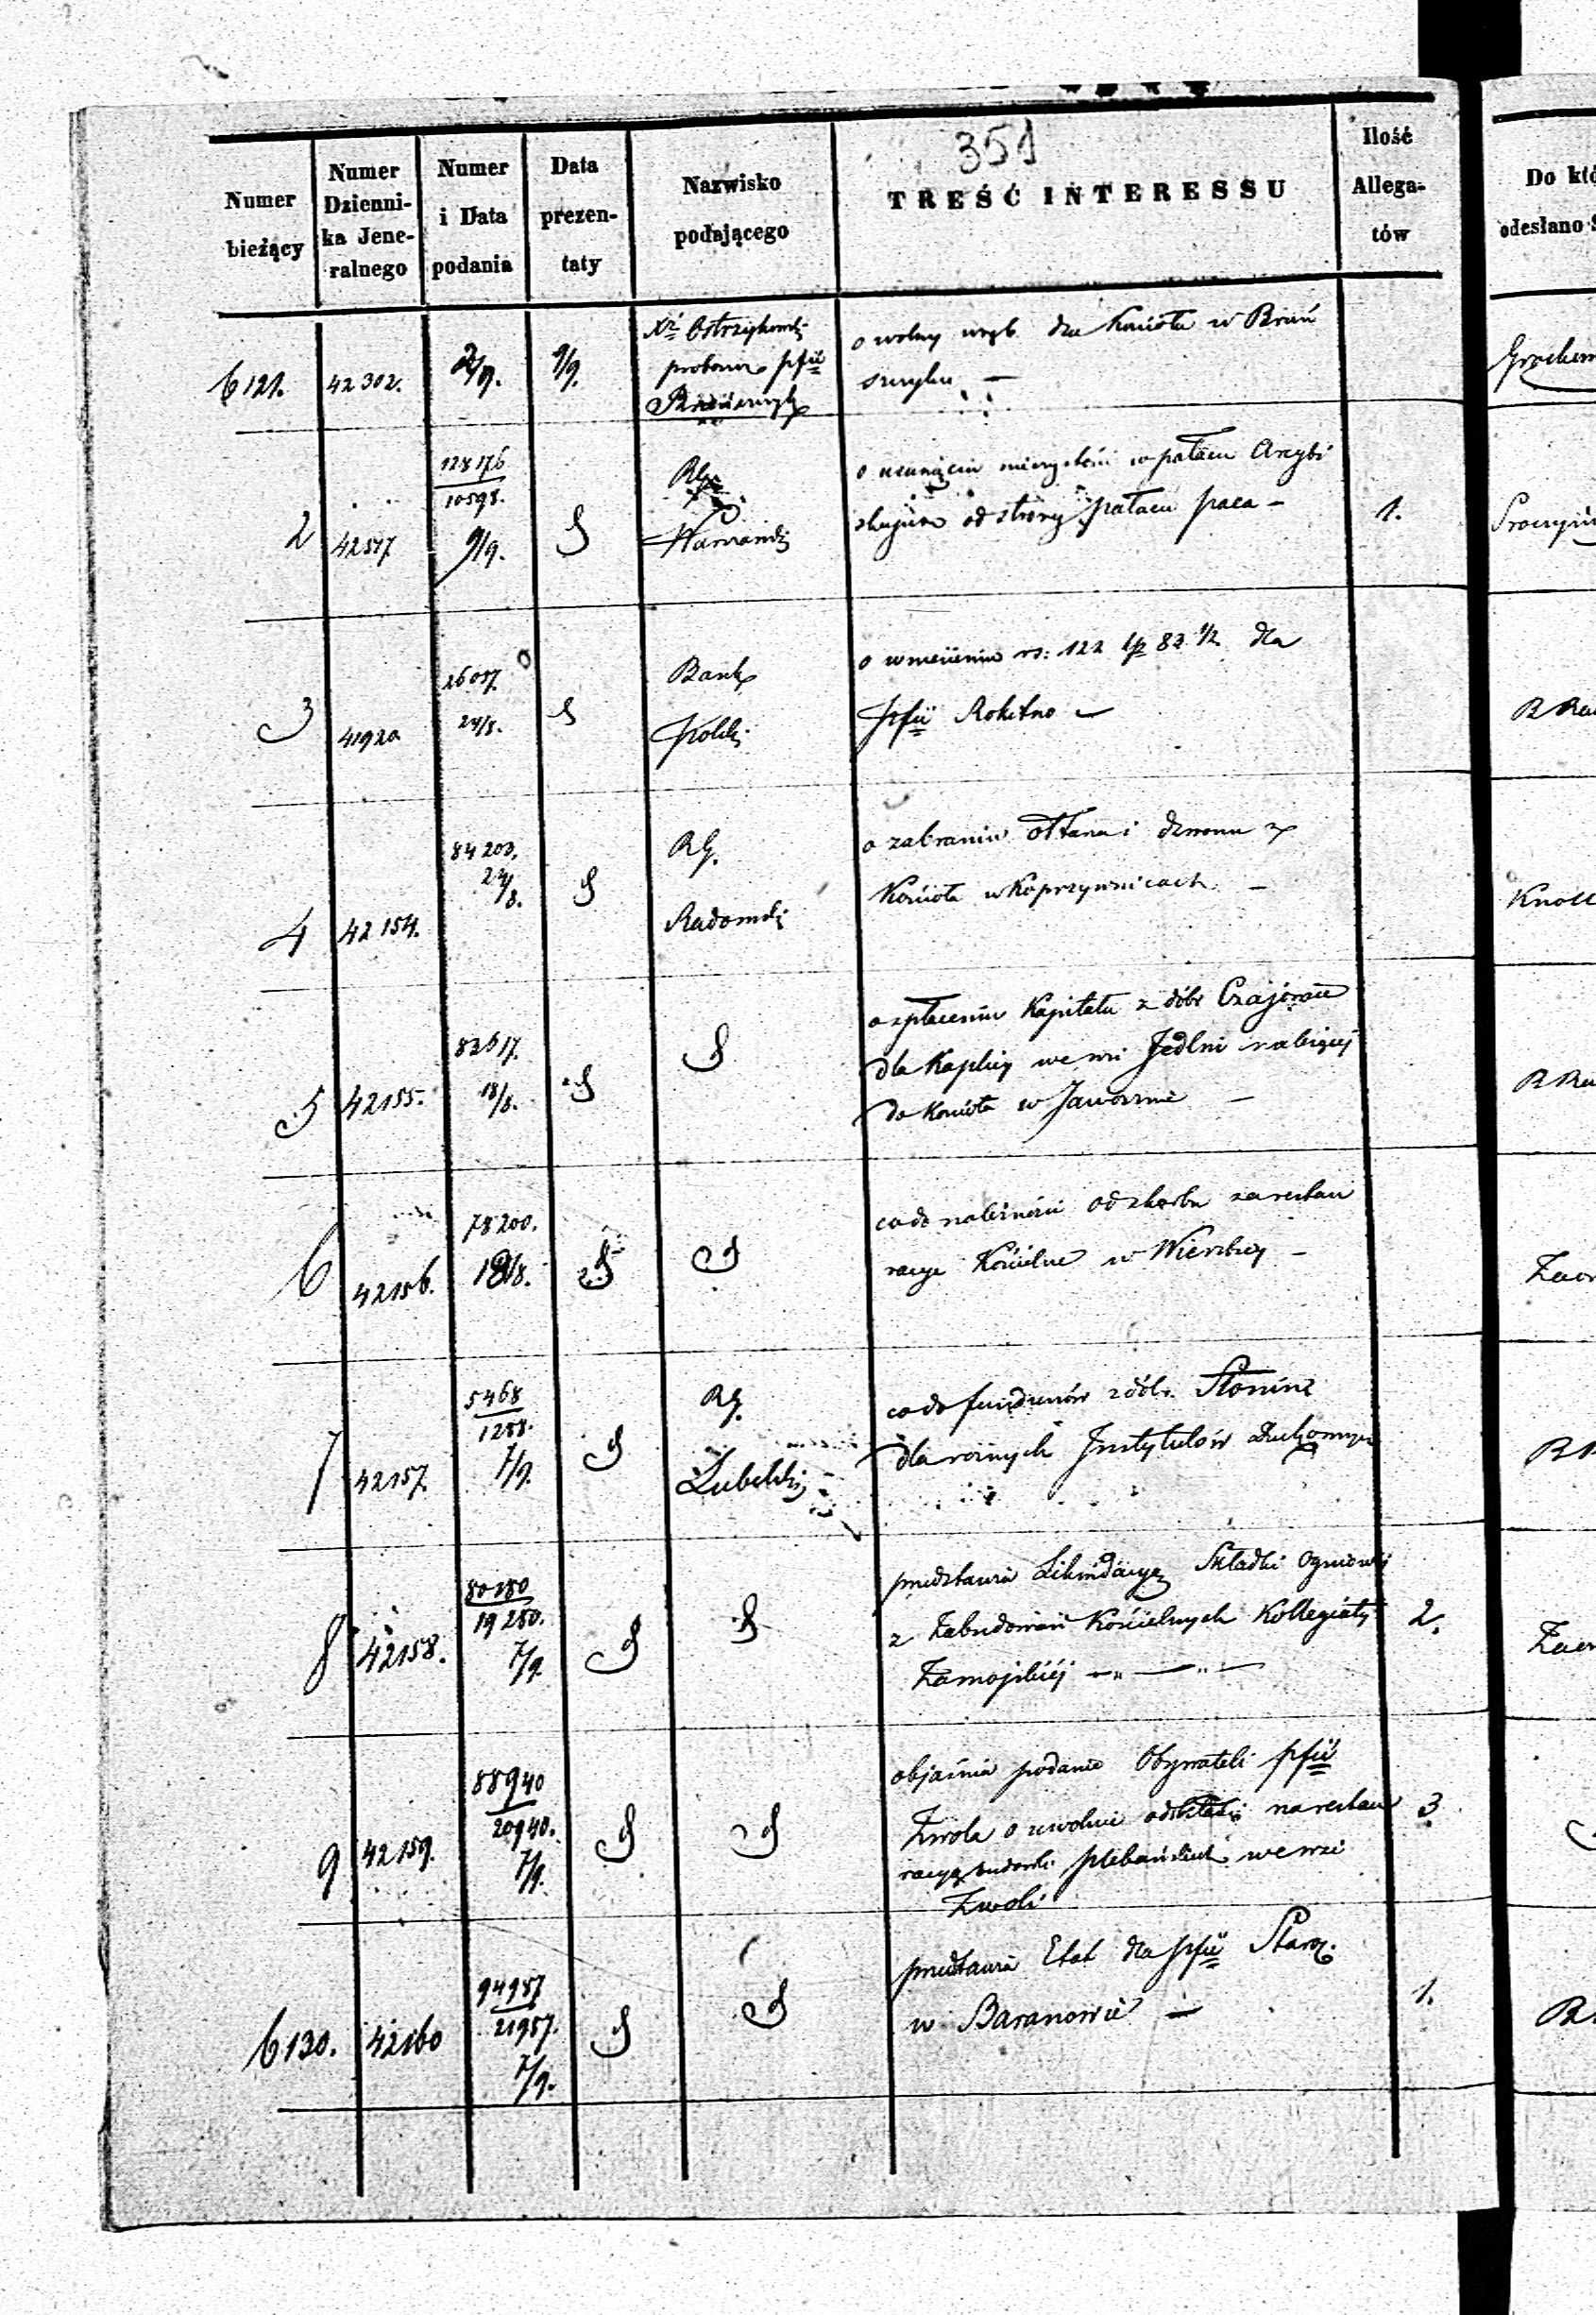 351
Numer bieżący | Numer Dzienni- ka Jene- ralnego | Numer i Data podania | Data prezen- taty | Nazwisko podającego | TREŚĆ INTERESSU | Ilość Allega- tów | Do któ
odesłano
6121. 42302. 2/9. 9/9.
Xś Ostrzykowski
proboszcz pfii
o wolny wrąb dla Kościoła w Brań
szczyku —
2 42517 128176
10598.
9/9.
RG
Warszawski
o usunięciu nieczystości w pałacu Arcybi
skupim od strony pałacu Paca —
1.
3 41920 26057
24/8.
Bank
Polski
o wniesieniu rs: 122 kp 83 1/2 dla
pfii Rokitno —
4 42154. 84203.
24/8.
RG.
Radomski
o zabraniu ołtarza i dzwonu z
Kościoła w Koprzywnicach —
5 42155. 82617.
18/8.
o spłaceniu Kapitału z dóbr Czajęcice
dla Kaplicy we wsi Jedlni należącej
do Kościoła w Jaworzni —
6 42156. 78200.
18/8.
co do należności od skarbu za restau
racye Kościelne w Wierzbicy —
7 42157. 5468
1258.
7/9.
RG.
Lubelski
co do funduszów z dóbr Słonim
dla różnych Instytutów Duchownych
8 42158. 80280
19280.
7/9.
przedstawia Likwidacyę Składki Ogniowej
z Zabudowań Kościelnych Kollegiaty
Zamojskiéj — „ — „ —
2.
9 42159. 88940
20940.
7/9.
objaśnia podanie Obywateli pfii
Zwola o uwolnie od składki na restau
racyę budowli plebańskich we wsi
Zwoli
3
6130. 42160 94957
21957.
7/9.
przedstawia Etat dla pfii
w Baranowie —
1.